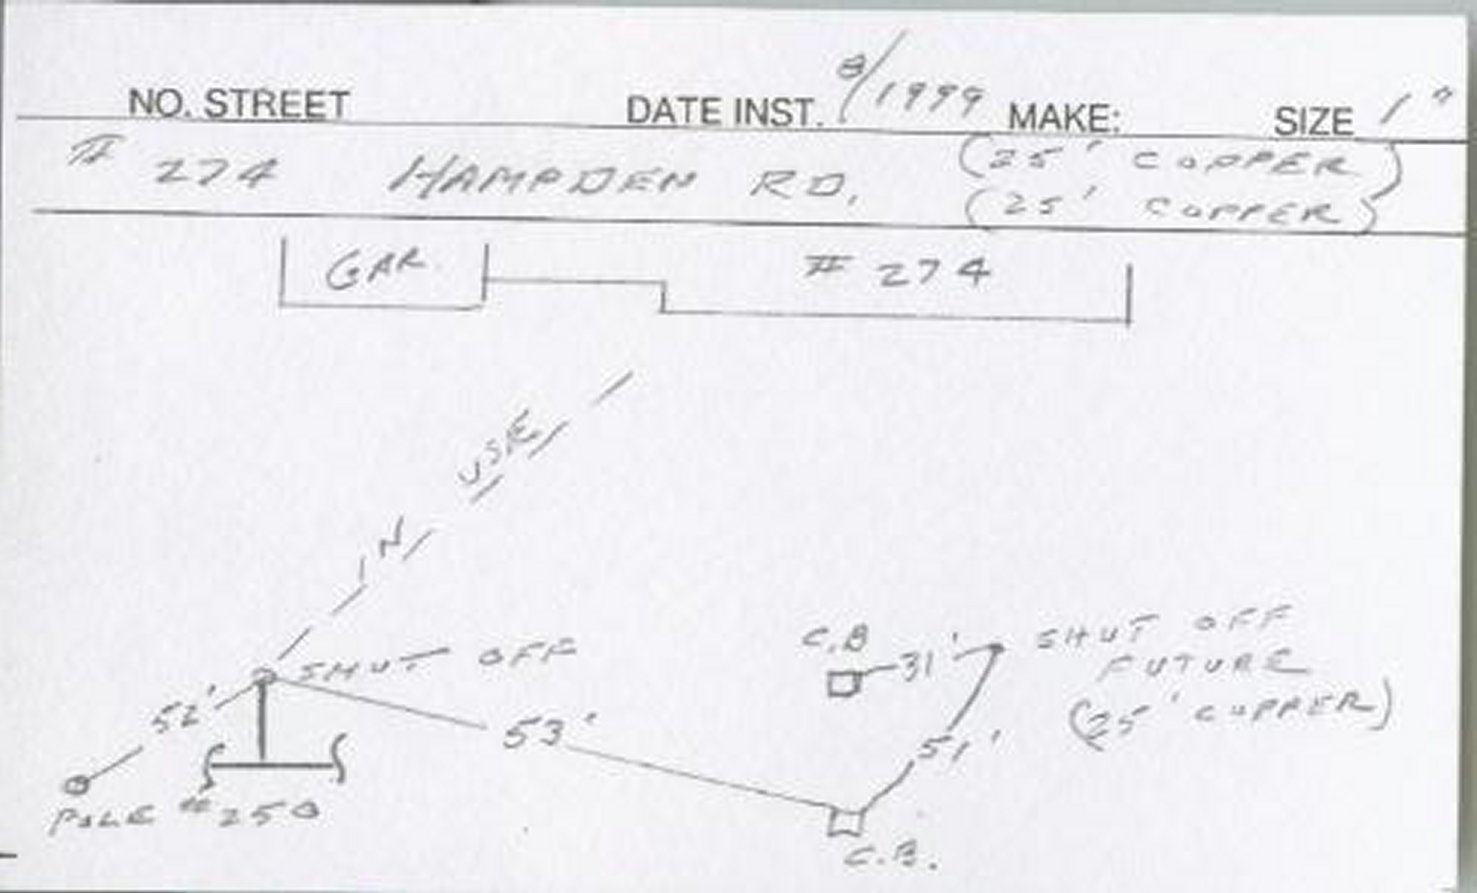 NO. STREET DATE INST. 8/1999 MAKE: SIZE 1"
# 274 HAMPDEN RD. (25' COPPER)
(25' COPPER)
GAR. # 274
IN USE
SHUT OFF
52'
53'
POLE #250
C.B
31'
SHUT OFF
FUTURE
(25' COPPER)
51'
C.B.